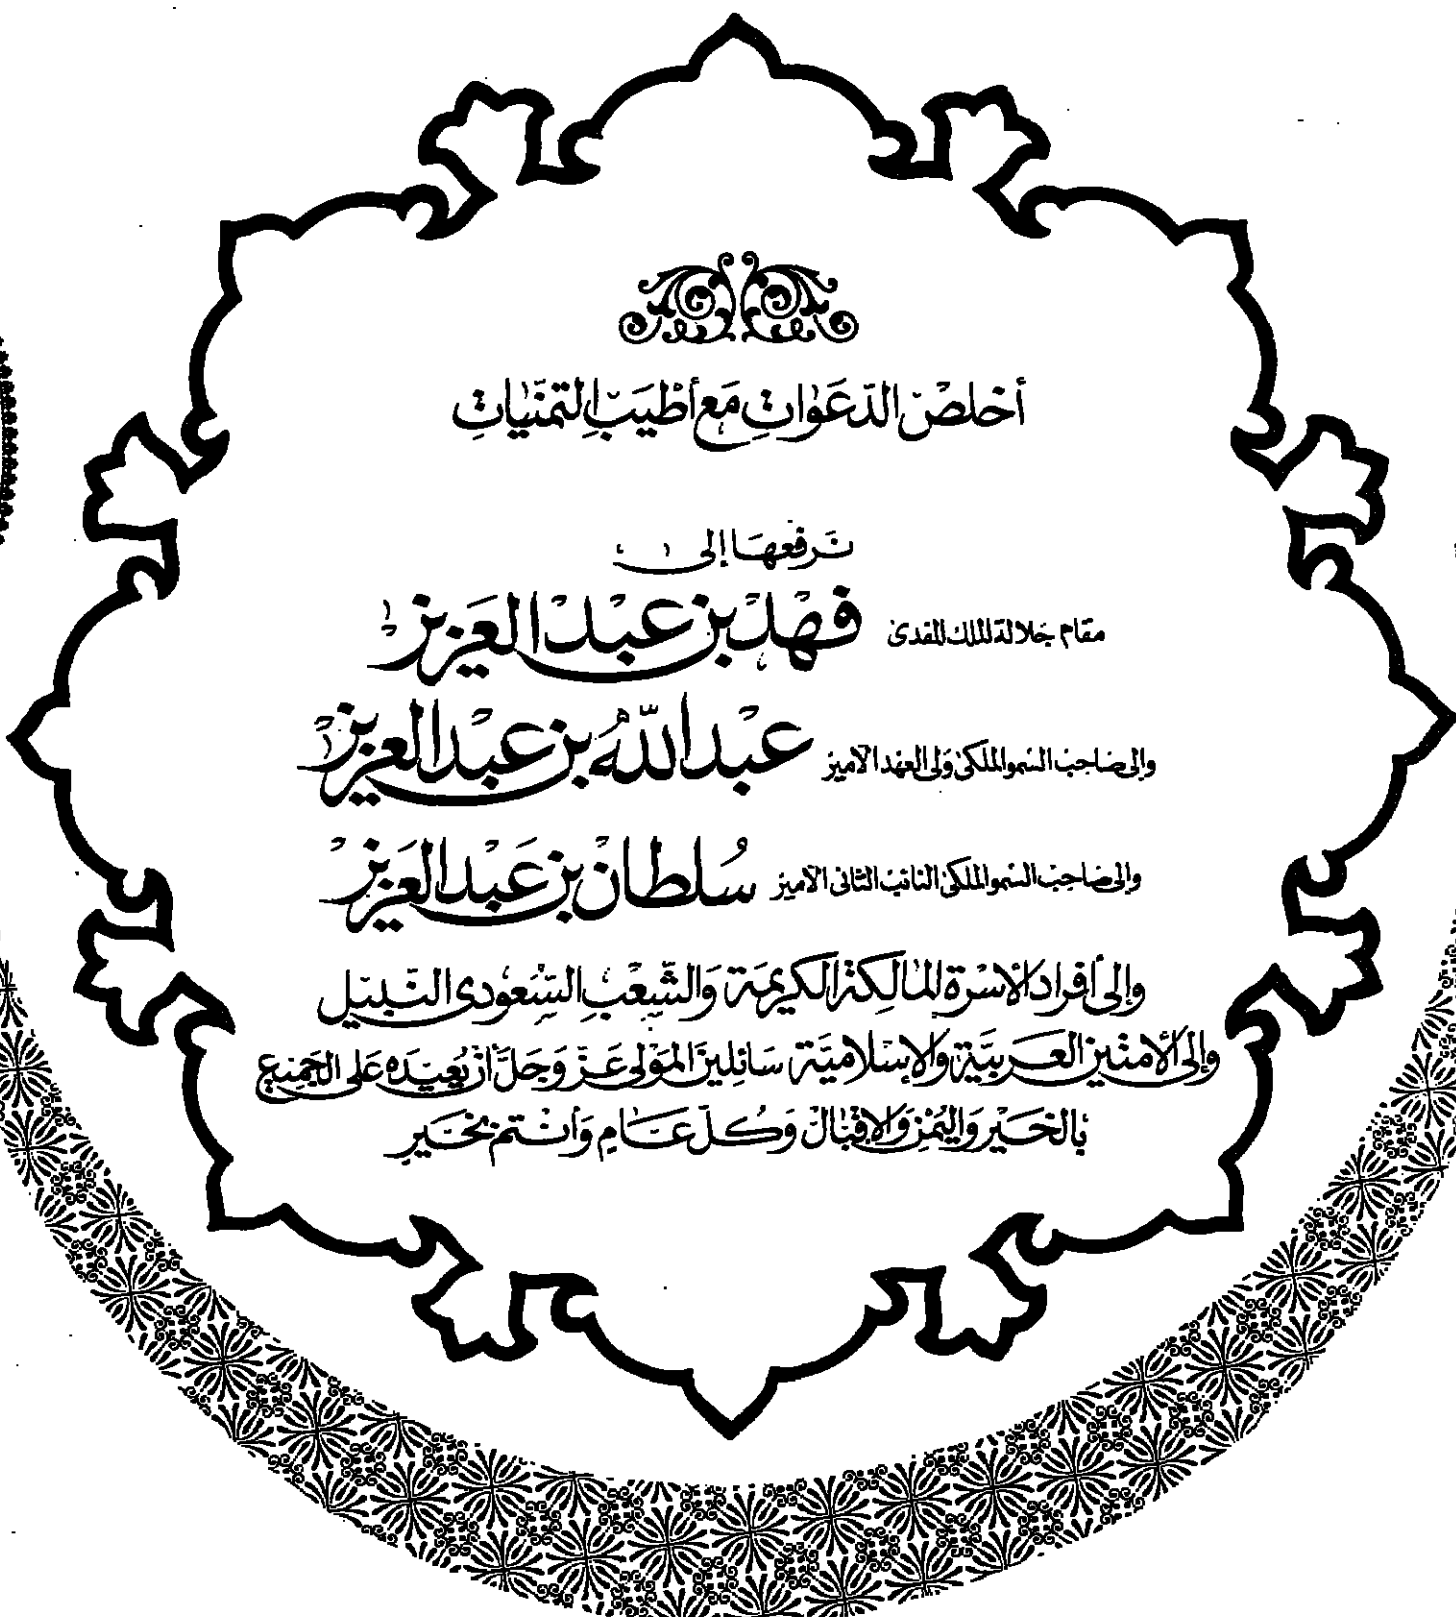 أخلص الدّعَوات مَع أطْيَب التمنّيات
نَرفعهَا إلى
مقام جَلالة الملك المفدى فهْد بن عبْد العَزيز
وإلى صَاحِب السّمو الملكي وَلي العهْد الأمير عبْد اللّه بن عبْد العزيز
وإلى صَاحِب السّمو الملكي النائب الثاني الأمير سُلطان بن عَبْد العَزيز
وإلى أفراد الأسْرة المالِكة الكريمَة وَالشّعْب السّعودي النّبيل
وإلى الأمتين العَربيَّة والإسْلاميَّة سَائِلين المَوْلى عَزّ وَجَلَّ أن يُعيدَه عَلى الجَميع
بالخَيْر وَاليُمْن وَالإقبَال وَكُل عَام وَأنْتم بخَير